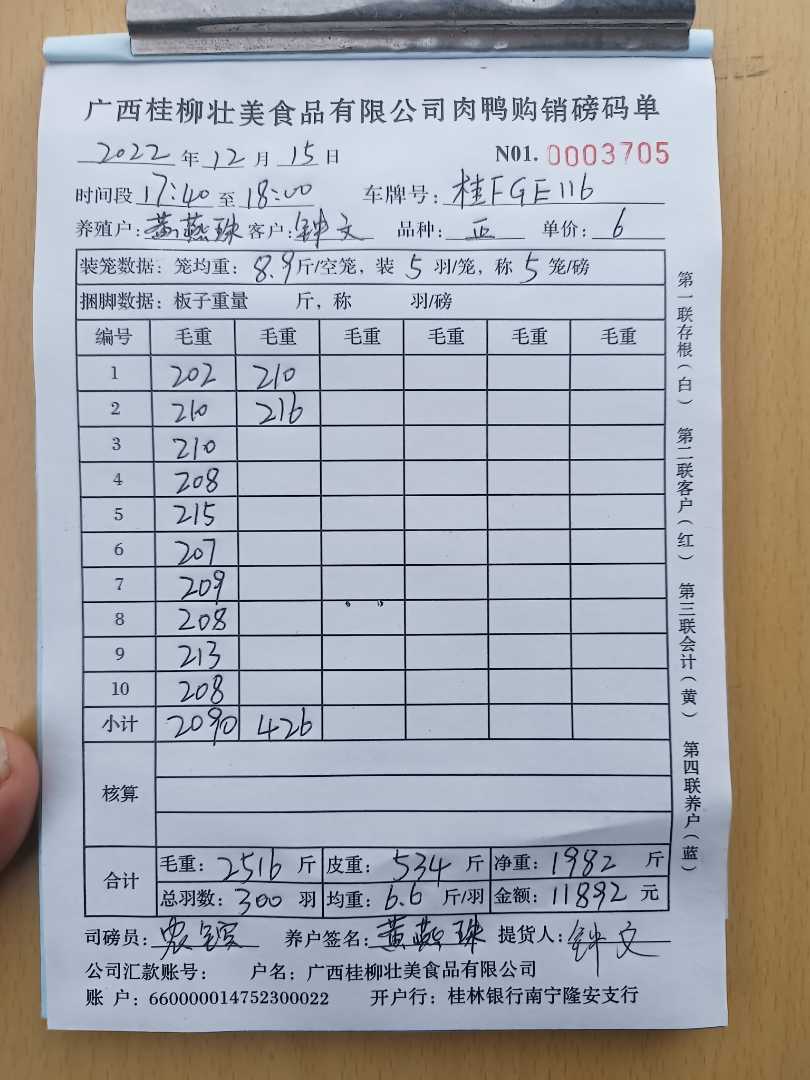 广西桂柳壮美食品有限公司肉鸭购销磅码单
2022年12月15日 N01. 0003705
时间段17:40至18:00 车牌号:桂FGE116
养殖户:黄燕珠 客户:钟文 品种:正 单价:6
装笼数据:笼均重:8.9斤/空笼,装5羽/笼,称5笼/磅
捆脚数据:板子重量 斤,称 羽/磅
编号 毛重 毛重 毛重 毛重 毛重 毛重
1 202 210
2 210 216
3 210
4 208
5 215
6 207
7 209
8 208
9 213
10 208
小计 2090 426
核算
合计 毛重:2516斤 皮重:534斤 净重:1982斤
总羽数:300羽 均重:6.6斤/羽 金额:11892元
司磅员: 养户签名:黄燕珠 提货人:钟文
公司汇款账号: 户名:广西桂柳壮美食品有限公司
账 户:660000014752300022 开户行:桂林银行南宁隆安支行
第一联存根(白) 第二联客户(红) 第三联会计(黄) 第四联养户(蓝)